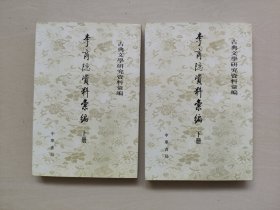 古典文學研究資料彙編
李商隱資料彙編
下册
中華書局
古典文學研究資料彙編
李商隱資料彙編
下册
中華書局